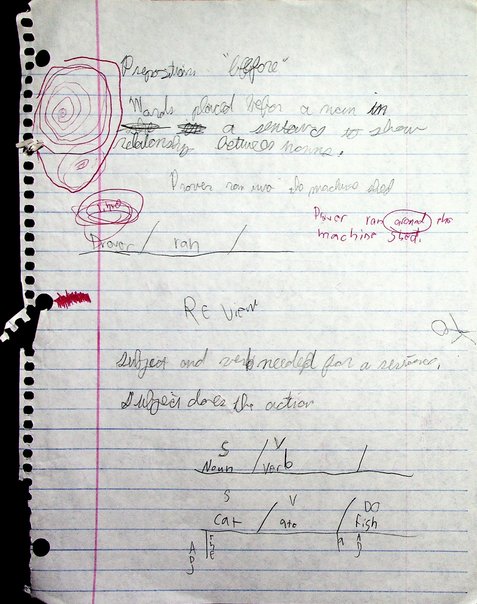 Preposition "before"
Words placed befor a noun in
a sentences to show
relationship betwees nouns.
Prover ran into the machine shed
Time
Prover ran around the
machine shed.
Prover / ran /
Re View
Subject and verb needed for a sentence.
Subject does the action
S V
Noun / Verb /
S V DO
cat / ate / fish
ADJ the a ADJ